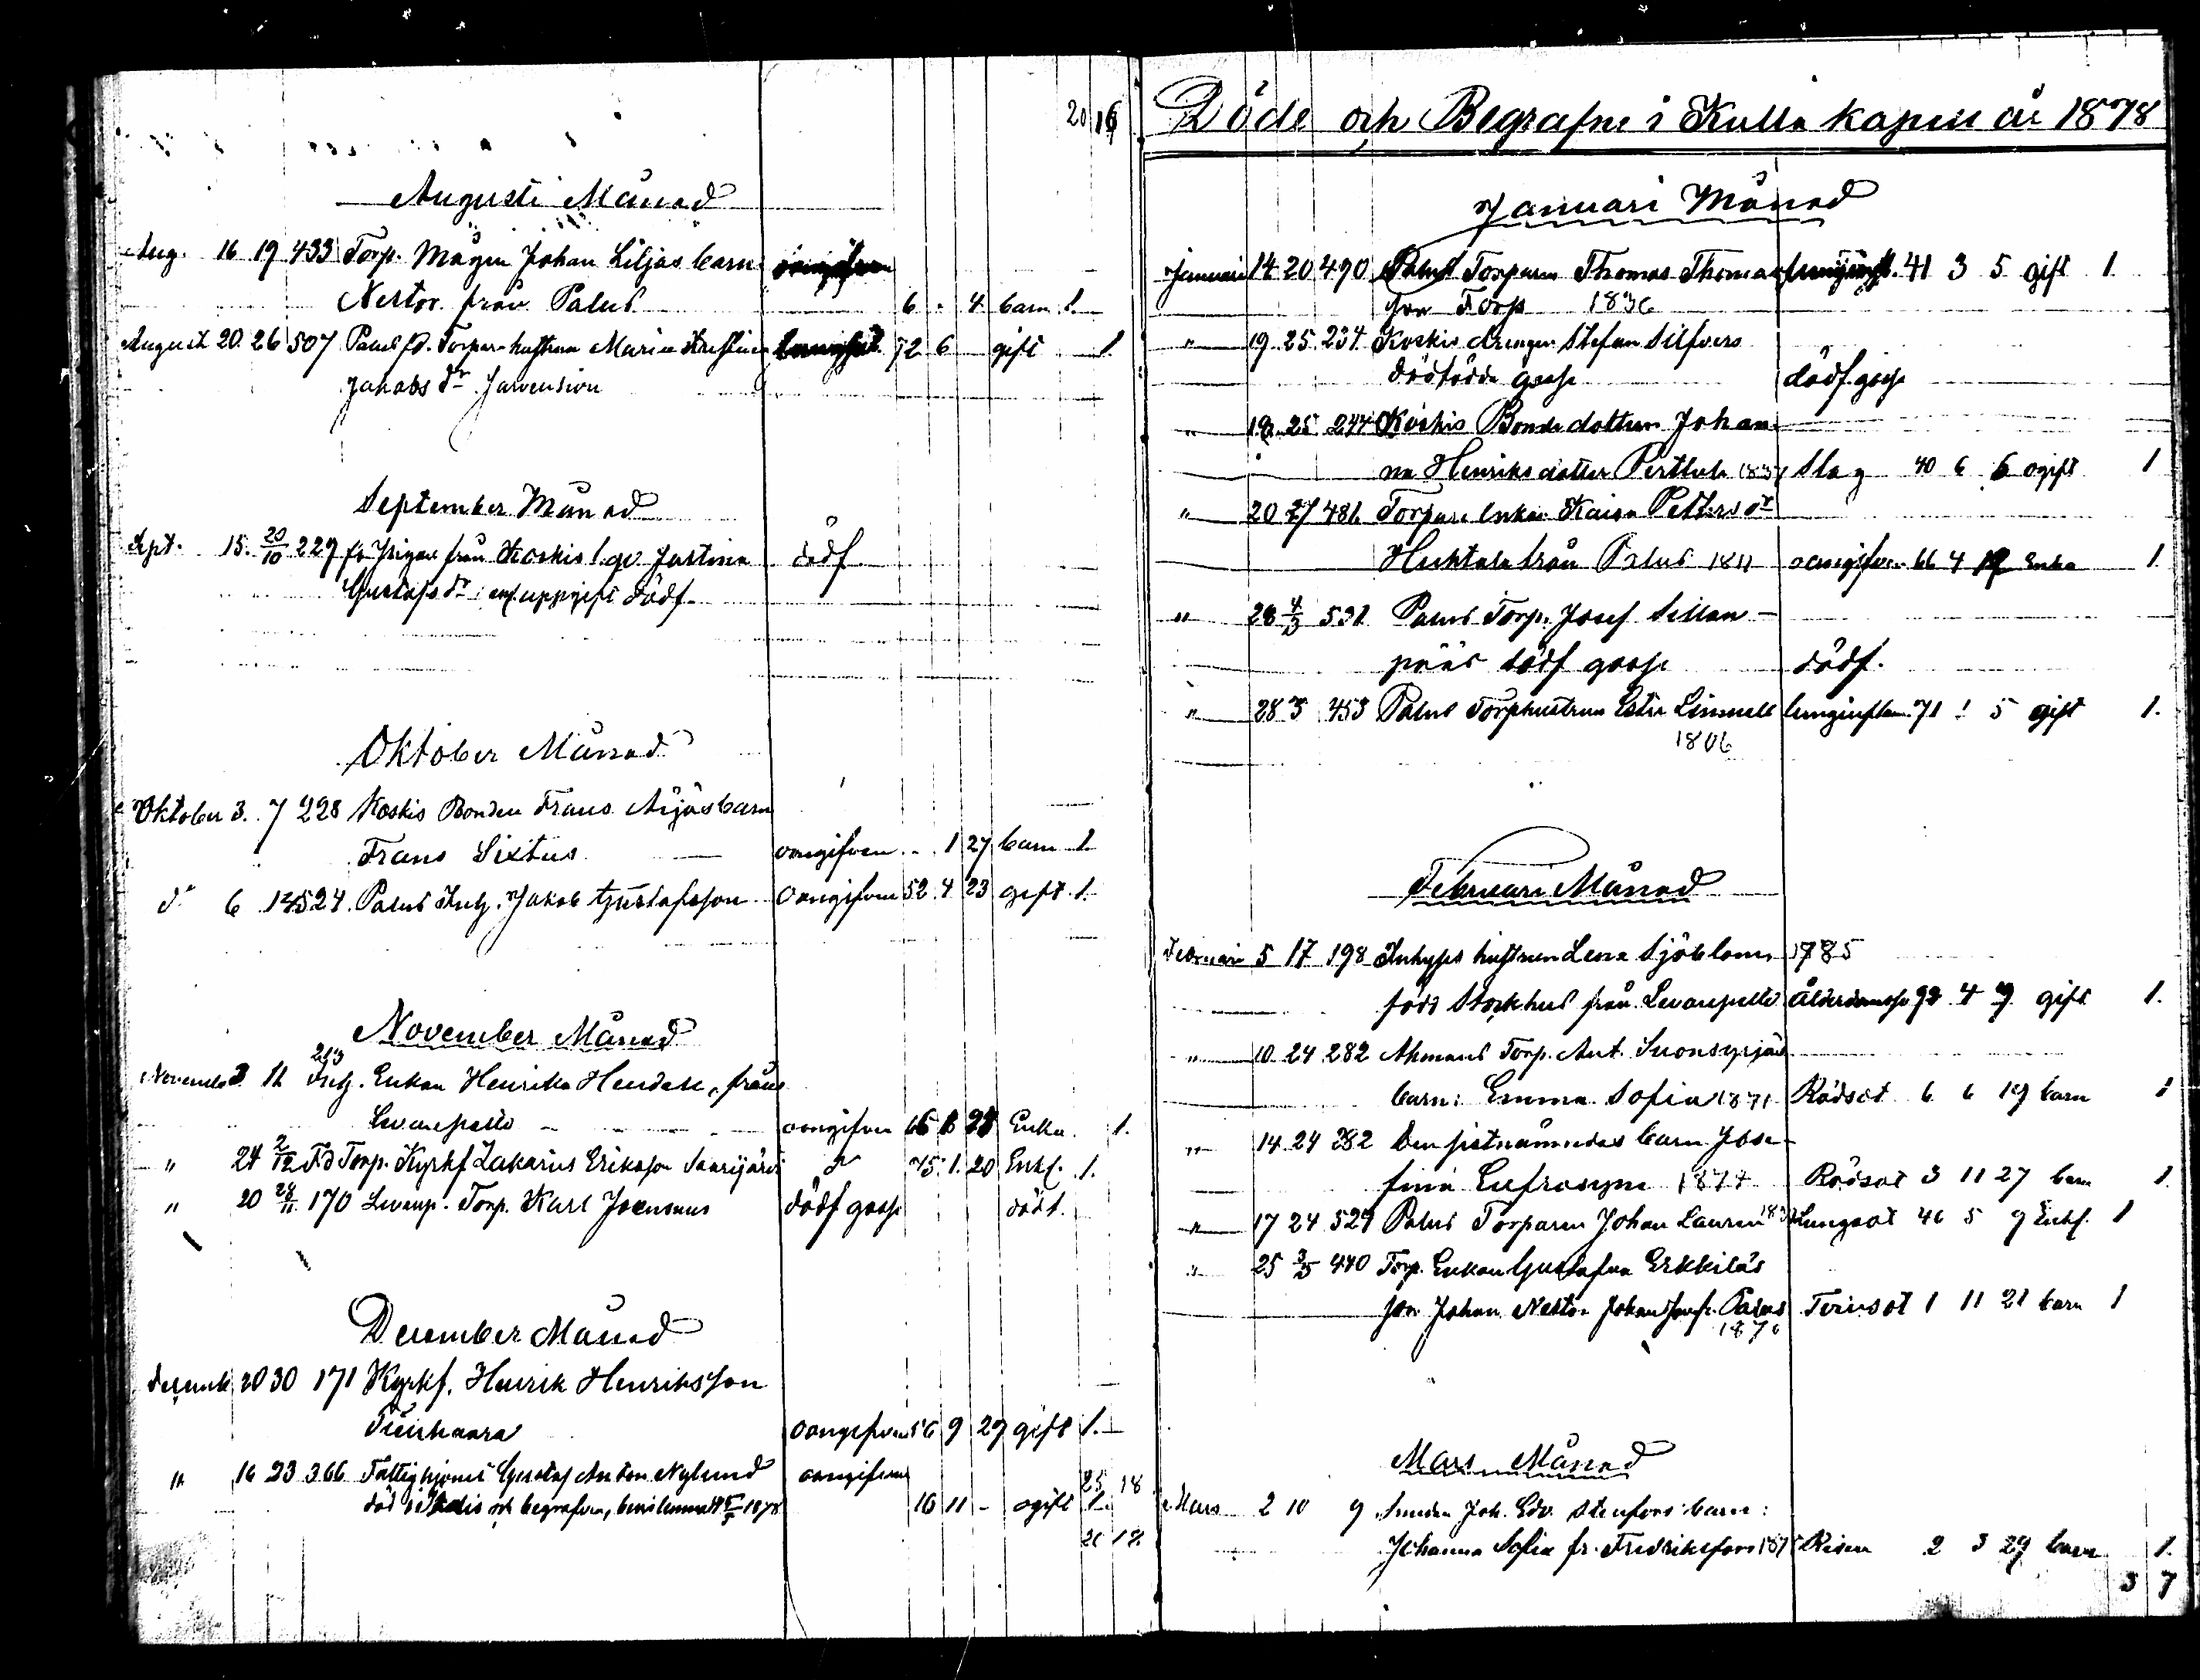 20 16
Augusti Månad
Aug. 16 19 433 Torp. Mågen Johan Liljas barn
Nestor från Palus 6 - 4 barn 1
August 20 26 507 Palus fd. Torpare hustrun Maria Kristina lungsot 72 6 gift 1
Jakobs dr Jarvensivu
September Månad
Sept. 15. 20/10 229 från Koskis l. qv. Justina dödf
Gustafs dr uppgift dödf.
Oktober Månad
Oktober 3. 7 228 Koskis Bonden Frans Äijäs barn
Frans Sixtus oangifven - 1 27 barn 1
do 6 14 524 Palus Inh. Jakob Gustafsson oangifven 52 4 23 gift 1.
November Månad
213
Novemb 3 11 Inh. Enkan Henrika Heudake, från
Levanpelto oangifven 66 8 28 Enka 1.
" 24 2/12 Fd Torp. Kyrkf Zakarias Eriksson Saarijärvi do 75 1 20 Enkl. 1.
" 20 28/11 170 Levanp. Torp. Karl dödf gosse dödf.
December Månad
Decemb. 20 30 171 Kyrkf. Henrik Henriksson
oangifven 56 9 29 gift 1.
" 16 23 366 Fattighjonet Gustaf Anton Nylund oangifven 25 18
död i och begrafven, 1878 16 11 - ogift 1.
26 18
Döde och Begrafne i Kulla kapell år 1878
Januari Månad
Januari 14 20 490 Palus Torparen Thomas Thomas lunginfl. 41 3 5 gift 1
son Torp 1836
" 19 25 234 Koskis drengen Stefan Silfvers
dödfödde gosse dödf. gosse
" 19 25 244 Koskis Bonde dottern Johan-
na Henriks dotter Perttula 1837 Slag 40 6 6 ogift 1
" 20 27 486 Torpare enkan Kaisa Petters dr
Huhtala från Palus 1811 oangifven 66 4 19 Enka 1.
" 28 4/3 531 Palus Torp. Josef Sillan-
pääs dödf gosse dödf.
" 28 3 453 Palus Torphustrun Ester Linnell lunginflam. 71 1 5 gift 1.
1806
Februari Månad
Februari 5 17 198 Inhyses hustrun Lena Sjöblom 1785
född Stockhus från Levanpelto Ålderdomssv 92 4 9 gift 1.
" 10 24 282 Ahmaus Torp. Ant. Suonsyrjäs
barn: Emma Sofia 1871 Rödsot 6 6 19 barn 1
" 14 24 282 Den sistnämndes barn Jose-
fina Eufrosyne 1874 Rödsot 3 11 27 barn 1
" 17 24 529 Palus Torparen Johan Laurin 1831 Lungsot 46 5 9 Enkl. 1
" 25 3/3 440 Torp. Enkan Gustafva Erkkiläs
son Johan Nestor Johansson fr. Palus Tvinsot 1 11 21 barn 1
1876
Mars Månad
Mars 2 10 9 Smeden Joh. Edv. Stenfors barn:
Johanna Sofia fr. Fredriksfors 1875 Risen 2 3 29 barn 1.
3 7